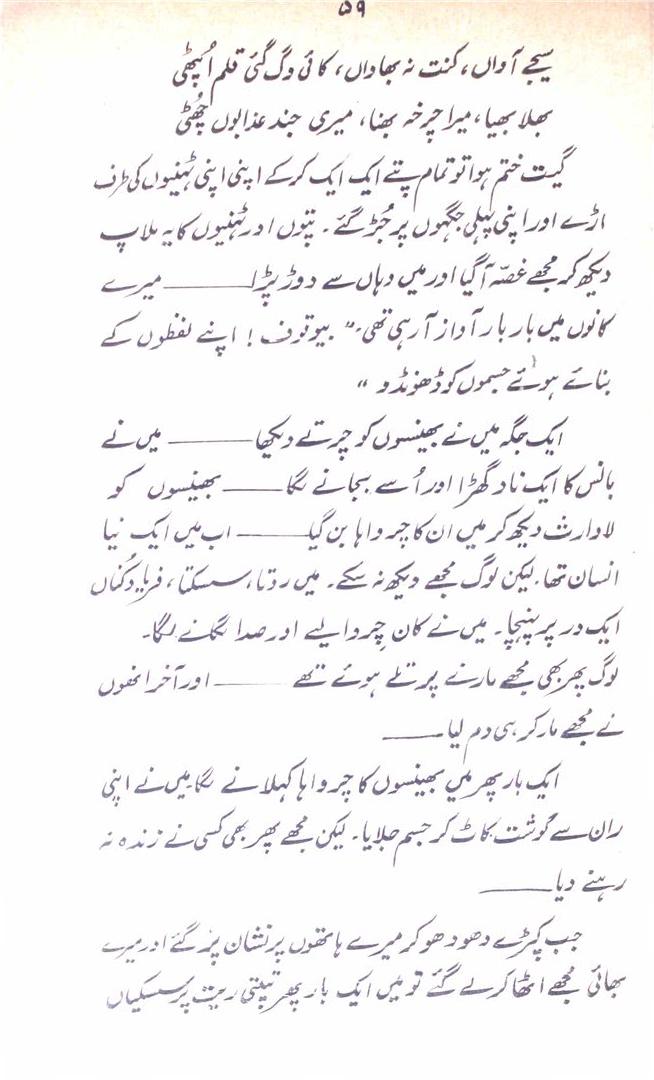 ۵۹
سیجے آواں، کنت نہ بھاواں، کائی وگ گئی قلم اُپٹھی
بھلا بھیا، میرا چرخہ بھنا، میری جند عذابوں چھُٹی
گیت ختم ہوا تو تمام پتے ایک ایک کر کے اپنی اپنی ٹہنیوں کی طرف
اڑے اور اپنی پہلی جگہوں پر جُڑ گئے۔ پتوں اور ٹہنیوں کا یہ ملاپ
دیکھ کر مجھے غصّہ آ گیا اور میں وہاں سے دوڑ پڑا ــــــــ میرے
کانوں میں بار بار آواز آ رہی تھی۔ " بیوقوف ! اپنے لفظوں کے
بنائے ہوئے جسموں کو ڈھونڈو "
ایک جگہ میں نے بھینسوں کو چرتے دیکھا ــــــــ میں نے
بانس کا ایک ناد گھڑا اور اُسے بجانے لگا ــــــــ بھینسوں کو
لاوارث دیکھ کر میں ان کا چرواہا بن گیا ــــــــ اب میں ایک نیا
انسان تھا۔ لیکن لوگ مجھے دیکھ نہ سکے۔ میں روتا، سسکتا، فریاد کناں
ایک در پر پہنچا۔ میں نے کان چِروا لیے اور صدا لگانے لگا۔
لوگ پھر بھی مجھے مارنے پر تلے ہوئے تھے ــــــــ اور آخر انھوں
نے مجھے مار کر ہی دم لیا ــــــــ
ایک بار پھر میں بھینسوں کا چرواہا کہلانے لگا۔ میں نے اپنی
ران سے گوشت کاٹ کر جسم جلایا۔ لیکن مجھے پھر بھی کسی نے زندہ نہ
رہنے دیا ــــــــ
جب کپڑے دھو دھو کر میرے ہاتھوں پر نشان پڑ گئے اور میرے
بھائی مجھے اٹھا کر لے گئے تو میں ایک بار پھر تپتی ریت پر سسکیاں